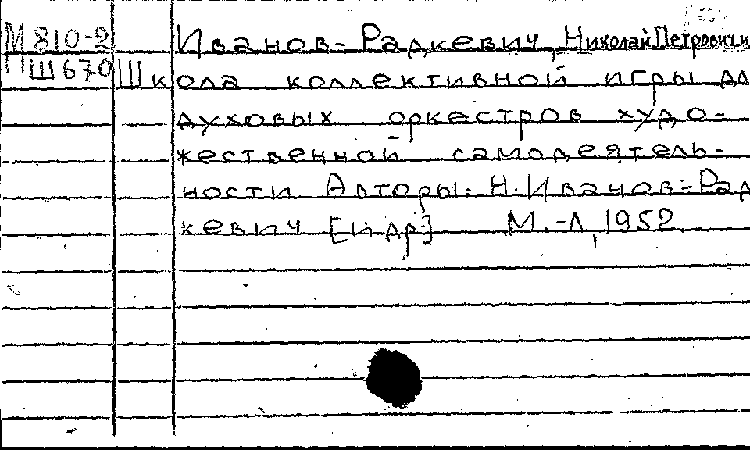 М 810-2 Иванов-Радкевич, Николай Петрович
Ш670 Школа коллективной игры дл
духовых оркестров худо-
жественной самодеятель-
ности. Авторы: Н.Иванов-Рад
кевич [и др] М.-Л, 1952